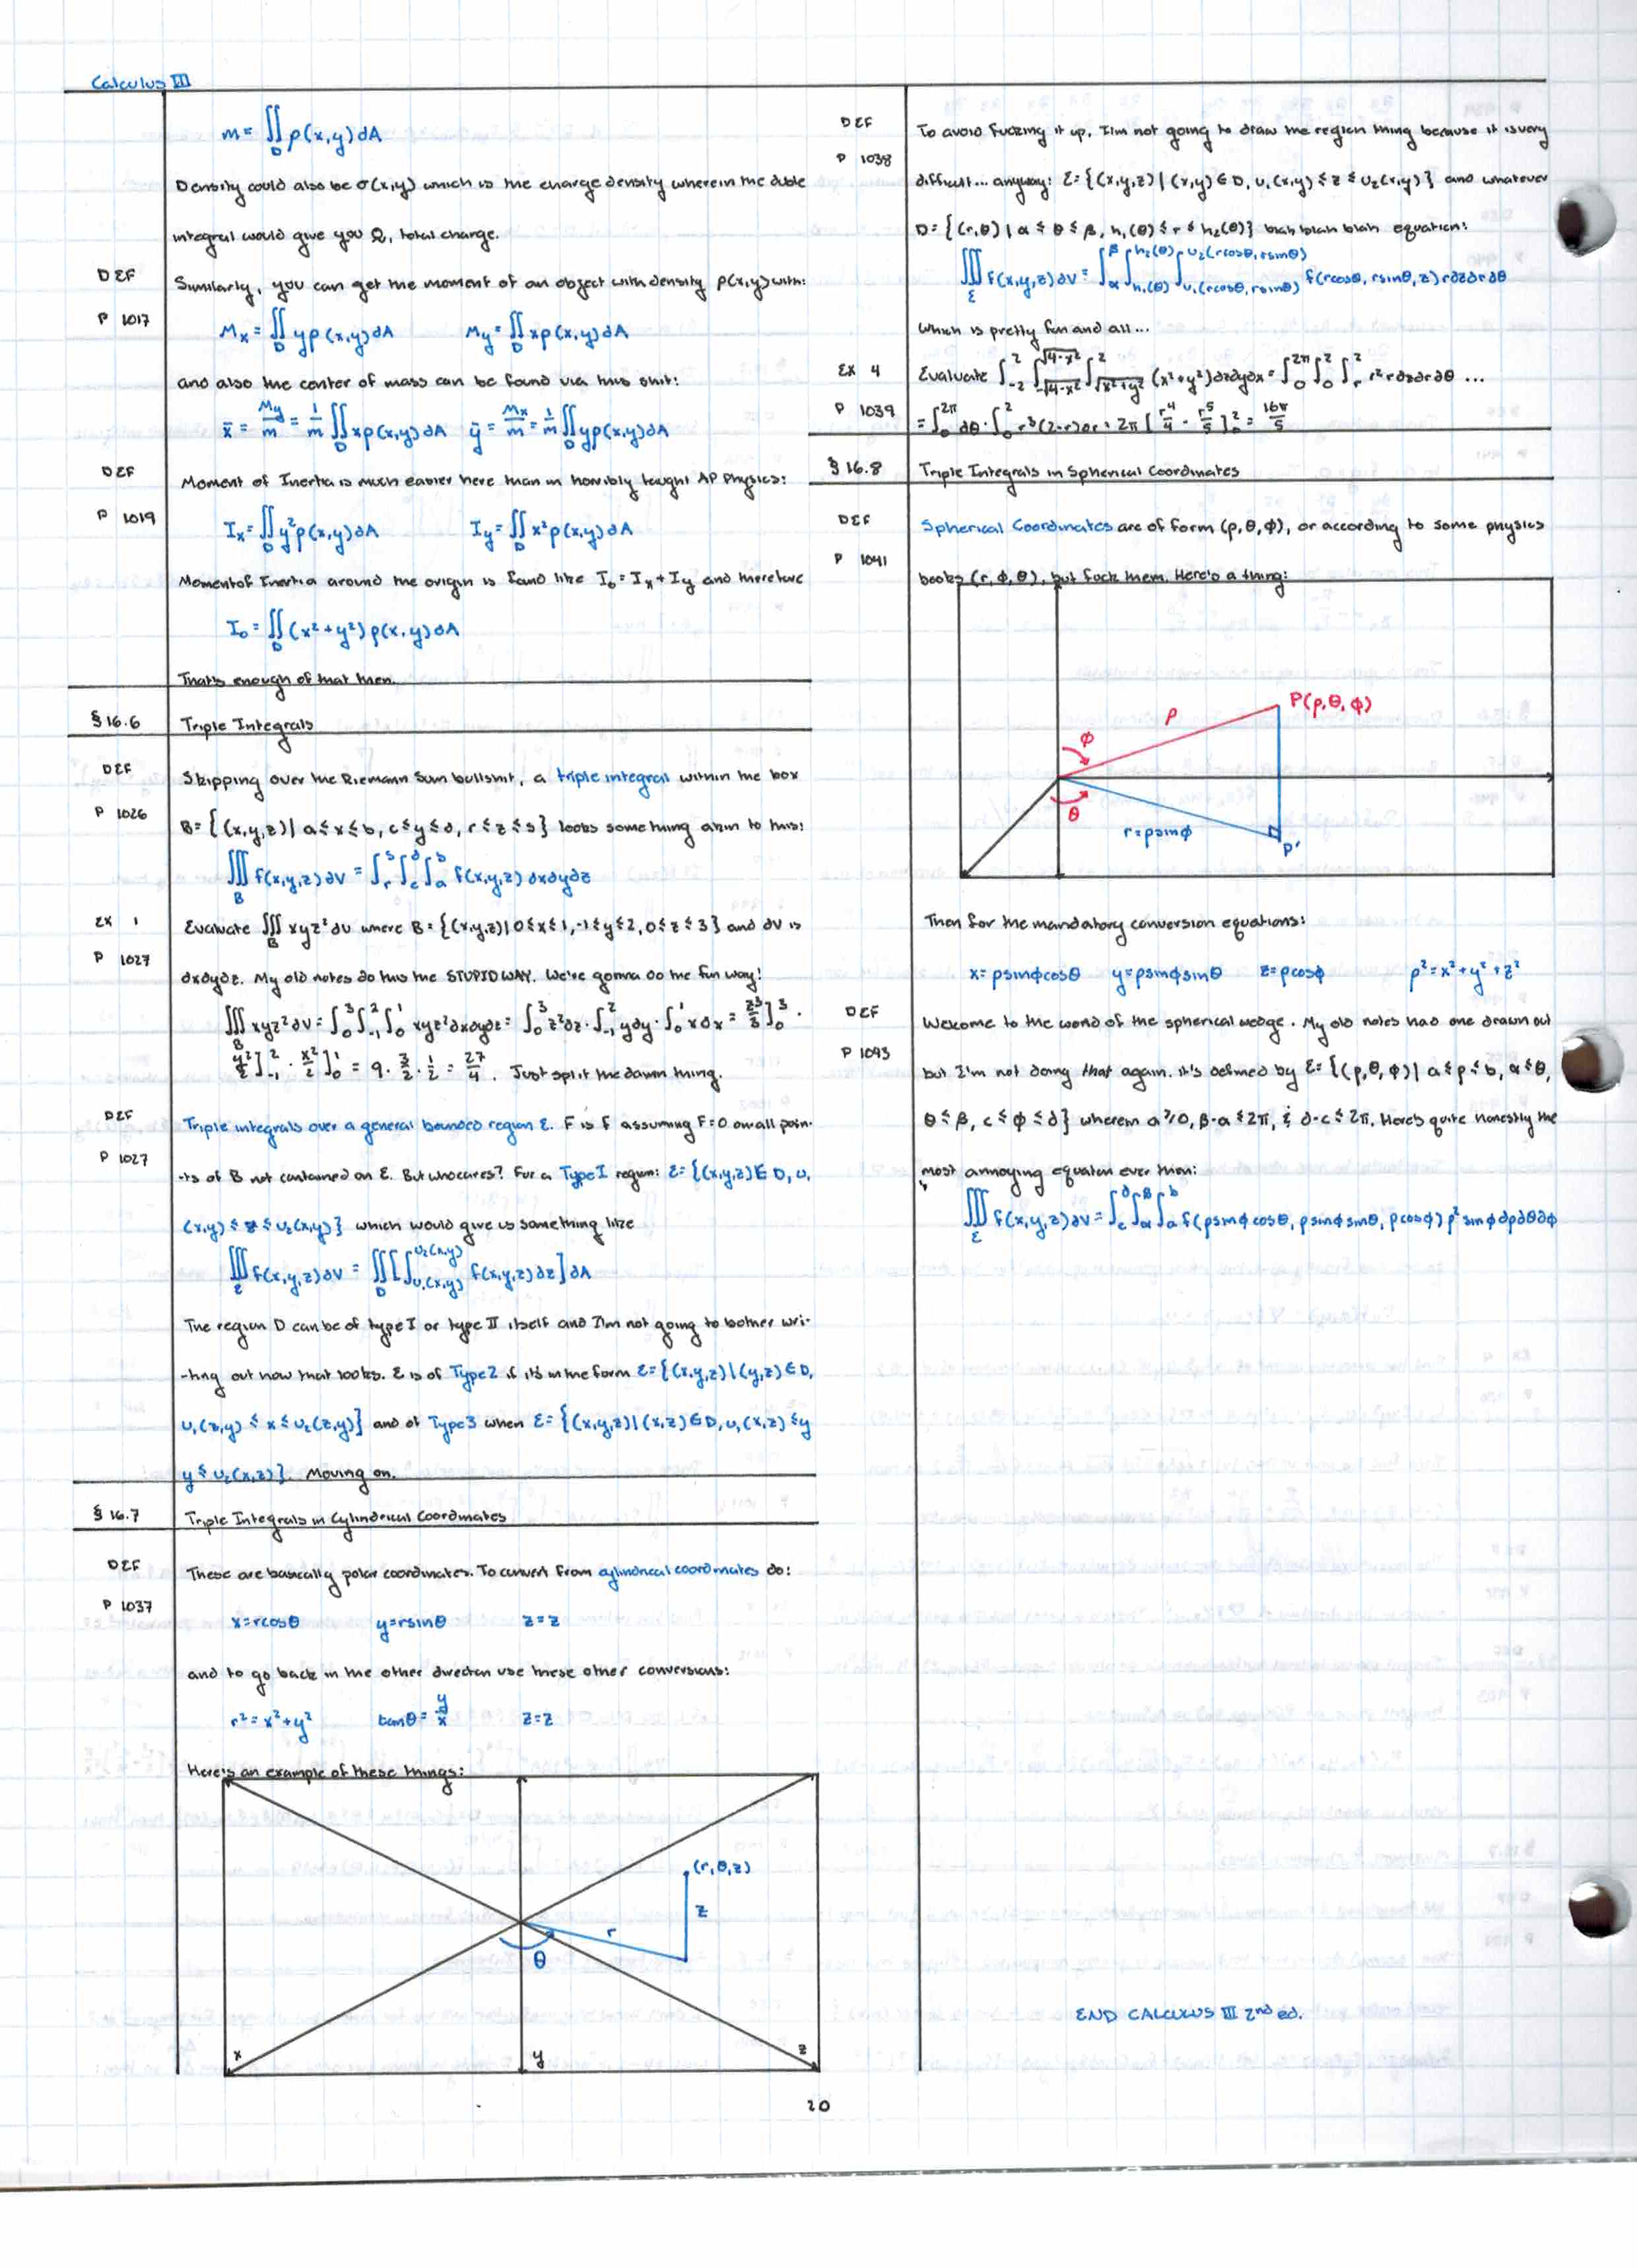 Calculus III
m = ∬_D ρ(x,y)dA
Density could also be σ(x,y) which is the charge density wherein the duble
integral would give you Q, total charge.
DEF
P 1017
Similarly, you can get the moment of an object with density ρ(x,y) with:
Mx = ∬_D yρ(x,y)dA My = ∬_D xρ(x,y)dA
and also the center of mass can be found via this shit:
x̄ = My/m = 1/m ∬_D xρ(x,y)dA ȳ = Mx/m = 1/m ∬_D yρ(x,y)dA
DEF
P 1019
Moment of Inertia is much easier here than in horribly taught AP Physics:
Ix = ∬_D y²ρ(x,y)dA Iy = ∬_D x²ρ(x,y)dA
Moment of Inertia around the origin is found like I₀ = Ix + Iy and therefore
I₀ = ∬_D (x²+y²)ρ(x,y)dA
That's enough of that then.
§ 16.6 Triple Integrals
DEF
P 1026
Skipping over the Riemann Sum bullshit, a triple integral within the box
B = {(x,y,z)| a≤x≤b, c≤y≤d, r≤z≤s} looks something akin to this:
∭_B f(x,y,z)dV = ∫_r^s ∫_c^d ∫_a^b f(x,y,z)dxdydz
EX 1
P 1027
Evaluate ∭_B xyz²dv where B = {(x,y,z)|0≤x≤1,-1≤y≤2,0≤z≤3} and dv is
dxdydz. My old notes do this the STUPID WAY. We're gonna do the fun way!
∭_B xyz²dV = ∫_0^3 ∫_-1^2 ∫_0^1 xyz²dxdydz = ∫_0^3 z²dz · ∫_-1^2 ydy · ∫_0^1 xdx = z³/3]_0^3 ·
y²/2]_-1^2 · x²/2]_0^1 = 9 · 3/2 · 1/2 = 27/4. Just split the damn thing.
DEF
P 1027
Triple integrals over a general bounded region E. F is f assuming F=0 on all poin-
-ts of B not contained on E. But who cares? For a Type I region: E = {(x,y,z) ∈ D, u₁
(x,y) ≤ z ≤ u₂(x,y)} which would give us something like
∭_E f(x,y,z)dV = ∬_D [∫_u₁(x,y)^u₂(x,y) f(x,y,z)dz]dA
The region D can be of type I or type II itself and I'm not going to bother wri-
-ting out how that looks. E is of Type 2 if it's in the form E = {(x,y,z)|(y,z) ∈ D,
u₁(z,y) ≤ x ≤ u₂(z,y)} and of Type 3 when E = {(x,y,z)|(x,z) ∈ D, u₁(x,z) ≤ y
y ≤ u₂(x,z)}. Moving on.
§ 16.7 Triple Integrals in Cylindrical Coordinates
DEF
P 1037
These are basically polar coordinates. To convert from cylindrical coordinates do:
x=rcosθ y=rsinθ z=z
and to go back in the other direction use these other conversions:
r² = x²+y² tanθ = y/x z=z
Here's an example of these things:
(r,θ,z)
z
r
θ
x y z
DEF
P 1038
To avoid fucking it up, I'm not going to draw the region thing because it is very
difficult... anyway: E = {(x,y,z)|(x,y) ∈ D, u₁(x,y) ≤ z ≤ u₂(x,y)} and whatever
D = {(r,θ)|α ≤ θ ≤ β, h₁(θ) ≤ r ≤ h₂(θ)} blah blah blah equation:
∭_E f(x,y,z)dV = ∫_α^β ∫_h₁(θ)^h₂(θ) ∫_u₁(rcosθ,rsinθ)^u₂(rcosθ,rsinθ) f(rcosθ,rsinθ,z)rdzdrdθ
Which is pretty fun and all...
EX 4
P 1039
Evaluate ∫_-2^2 ∫_-√(4-x²)^√(4-x²) ∫_√(x²+y²)^2 (x²+y²)dzdydx = ∫_0^2π ∫_0^2 ∫_r^2 r²rdzdrdθ ...
= ∫_0^2π dθ · ∫_0^2 r³(2-r)dr = 2π[r⁴/4 - r⁵/5]_0^2 = 16π/5
§ 16.8 Triple Integrals in Spherical Coordinates
DEF
P 1041
Spherical Coordinates are of form (ρ,θ,φ), or according to some physics
books (r,φ,θ), but fuck them. Here's a thing:
P(ρ,θ,φ)
ρ
φ
θ
r=ρsinφ
P'
Then for the mandatory conversion equations:
x=ρsinφcosθ y=ρsinφsinθ z=ρcosφ ρ²=x²+y²+z²
DEF
P 1043
Welcome to the world of the spherical wedge. My old notes had one drawn out
but I'm not doing that again. it's defined by E = {(ρ,θ,φ)| a≤ρ≤b, α≤θ,
θ≤β, c≤φ≤d} wherein a≥0, β-α≤2π, & d-c≤2π. Here's quite honestly the
most annoying equation ever then:
∭_E f(x,y,z)dV = ∫_c^d ∫_α^β ∫_a^b f(ρsinφcosθ, ρsinφsinθ, ρcosφ)ρ²sinφdρdθdφ
END CALCULUS III 2nd ed.
20